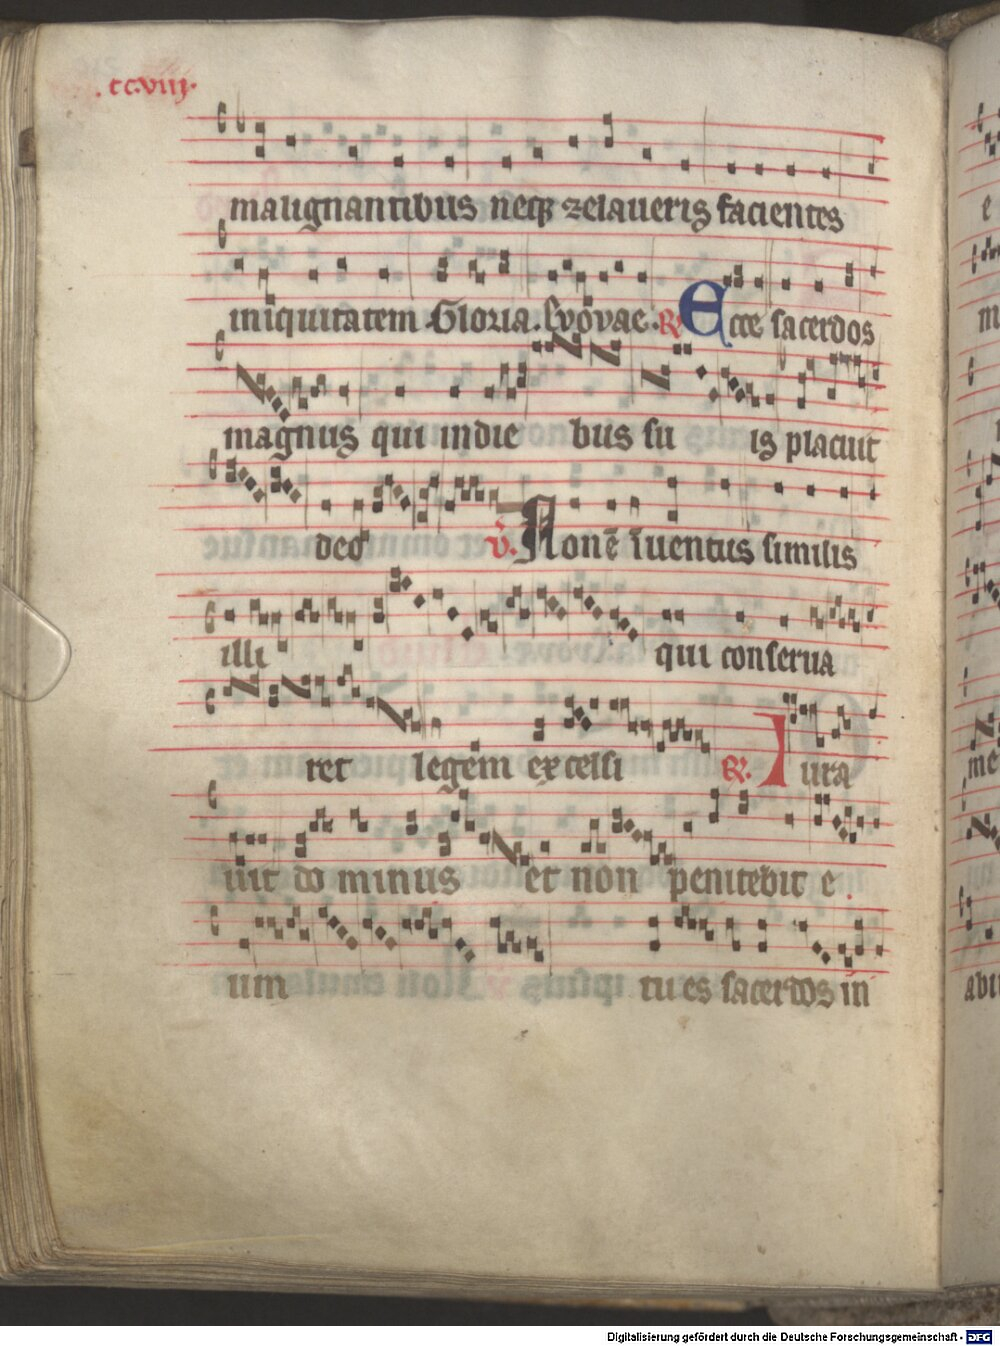 .ccviij.
malignantibus neqꝫ zelaueris facientes
iniquitatem Gloria. Evovae. ℟ Ecce sacerdos
magnus qui in die bus su is placuit
deo ℣. Non ē īuentus similis
illi qui conserua
ret legem excelsi ℟. Iura
uit do minus et non penitebit e
um tu es sacerdos in
Digitalisierung gefördert durch die Deutsche Forschungsgemeinschaft - DFG